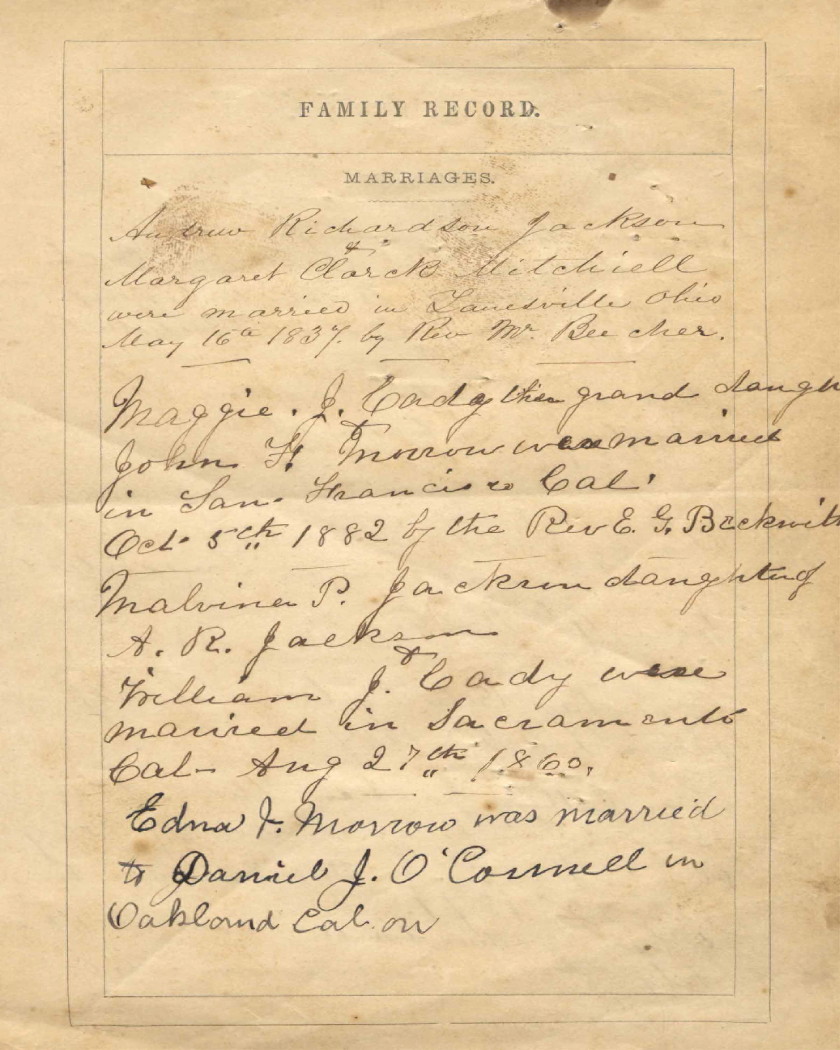 FAMILY RECORD.
MARRIAGES.
Andrew Richardson Jackson
&
Margaret Clarck Mitchell
were married in Zanesville Ohio
May 16th 1837. by Rev Mr. Beecher.
Maggie. J. Cady their grand daugh
&
John H. Morrow were married
in San. Francisco Cal.
Oct. 5th 1882 by the Rev E. G. Beckwith
Malvina P. Jackson daughter of
A. R. Jackson
&
William J. Cady were
married in Sacramento
Cal- Aug 27th 1860.
Edna J. Morrow was married
to Daniel J. O'Connell in
Oakland Cal. on